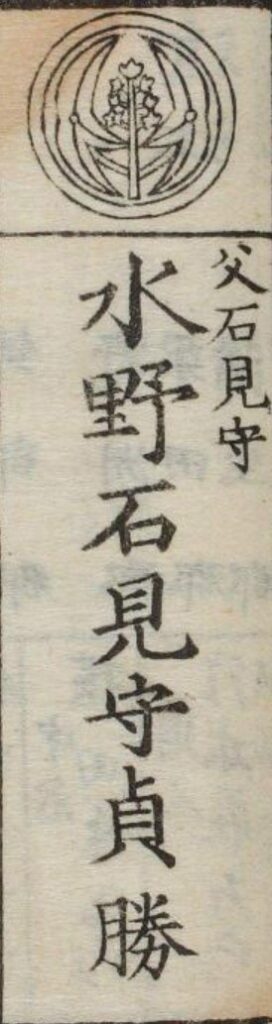 父石見守
水野石見守貞勝